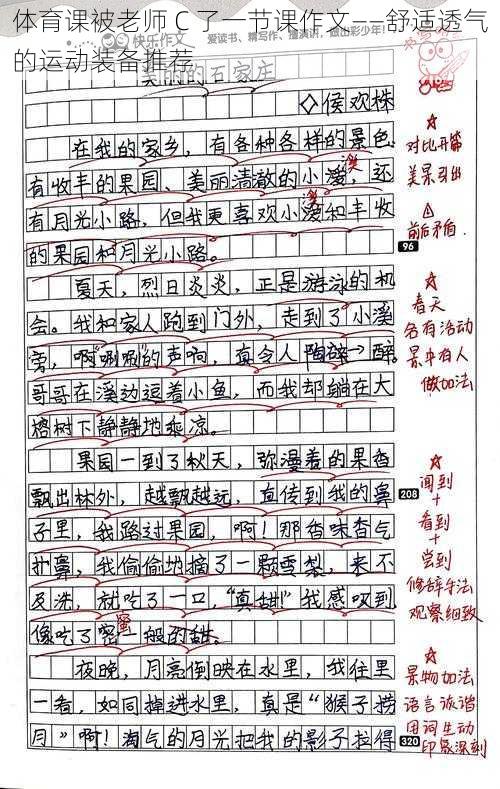 体育课被老师 C 了一节课作文——舒适透气
的运动装备推荐
快乐作文 爱读书、精写作、擅演讲，
美丽的石家庄
◇侯欢株
在我的家乡，有各种各样的景色，
有收丰的果园、美丽清澈的小溪，还
有月光小路，但我更喜欢小溪和丰收
的果园和月光小路。
夏天，烈日炎炎，正是游泳的机
会。我和家人跑到门外，走到了小溪
旁，啊"唰唰"的声响，真令人陶醉。
哥哥在溪边逗着小鱼，而我却躺在大
榕树下静静地乘凉。
果园一到了秋天，弥漫着的果香
飘出林外，越飘越远，直传到我的鼻
子里，我路过果园，啊！那香味香气
扑鼻，我偷偷地摘了一颗雪梨，来不
及洗，就吃了一口，"真甜"我感叹到，
像吃了蜜一般的甜。
夜晚，月亮倒映在水里，我往里
一看，如同掉进水里，真是"猴子捞
月"啊！淘气的月光把我的影子拉得
96
208
320
对比开篇
美景引出
前后矛盾.
春天
各有活动
景中有人
做加法
闻到
+
看到
+
尝到
修辞手法
观察细致
景物加法
语言诙谐
用词生动
印象深刻